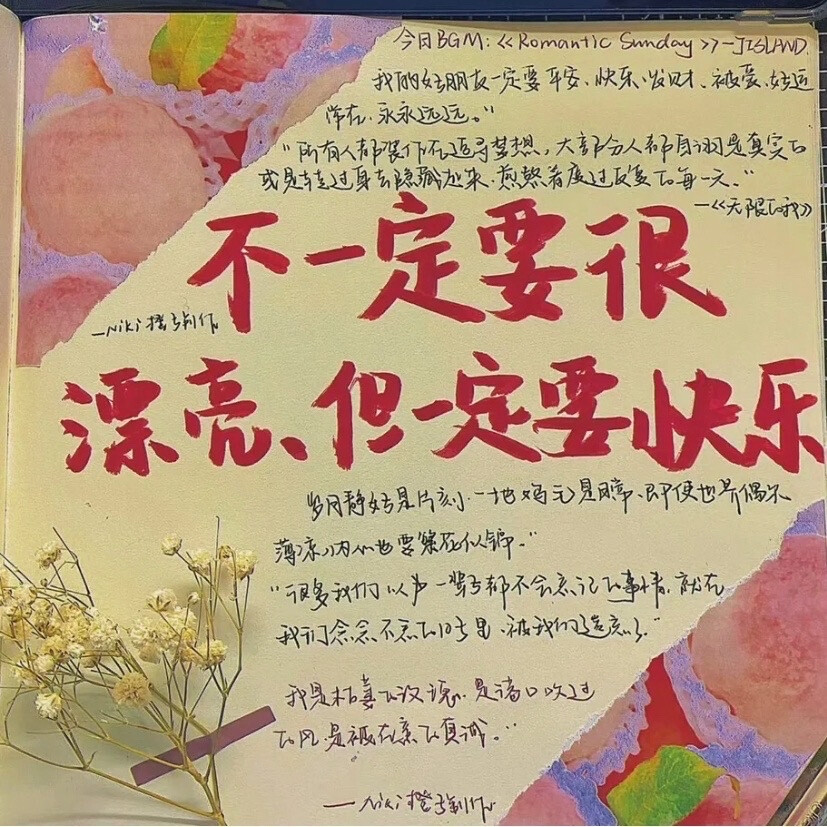 今日BGM:《Romantic Sunday》—JISLAND.
我的好朋友一定要平安、快乐、发财、被爱、好运
常在、永永远远。"
"所有人都装作在追寻梦想，大部分人都自诩是真实的
或是转过身去隐藏起来，煎熬着度过反复的每一天。"
—《无限的我》
不一定要很
—Niki橙子制作
漂亮、但一定要快乐
岁月静好是片刻、一地鸡毛是日常、即使世界偶尔
薄凉，内心也要繁花似锦。"
"很多我们以为一辈子都不会忘记的事情，就在
我们念念不忘的日子里，被我们遗忘了。"
我是枯藁的玫瑰、是港口吹过
的风、是被在意的真诚。"
—Niki橙子制作